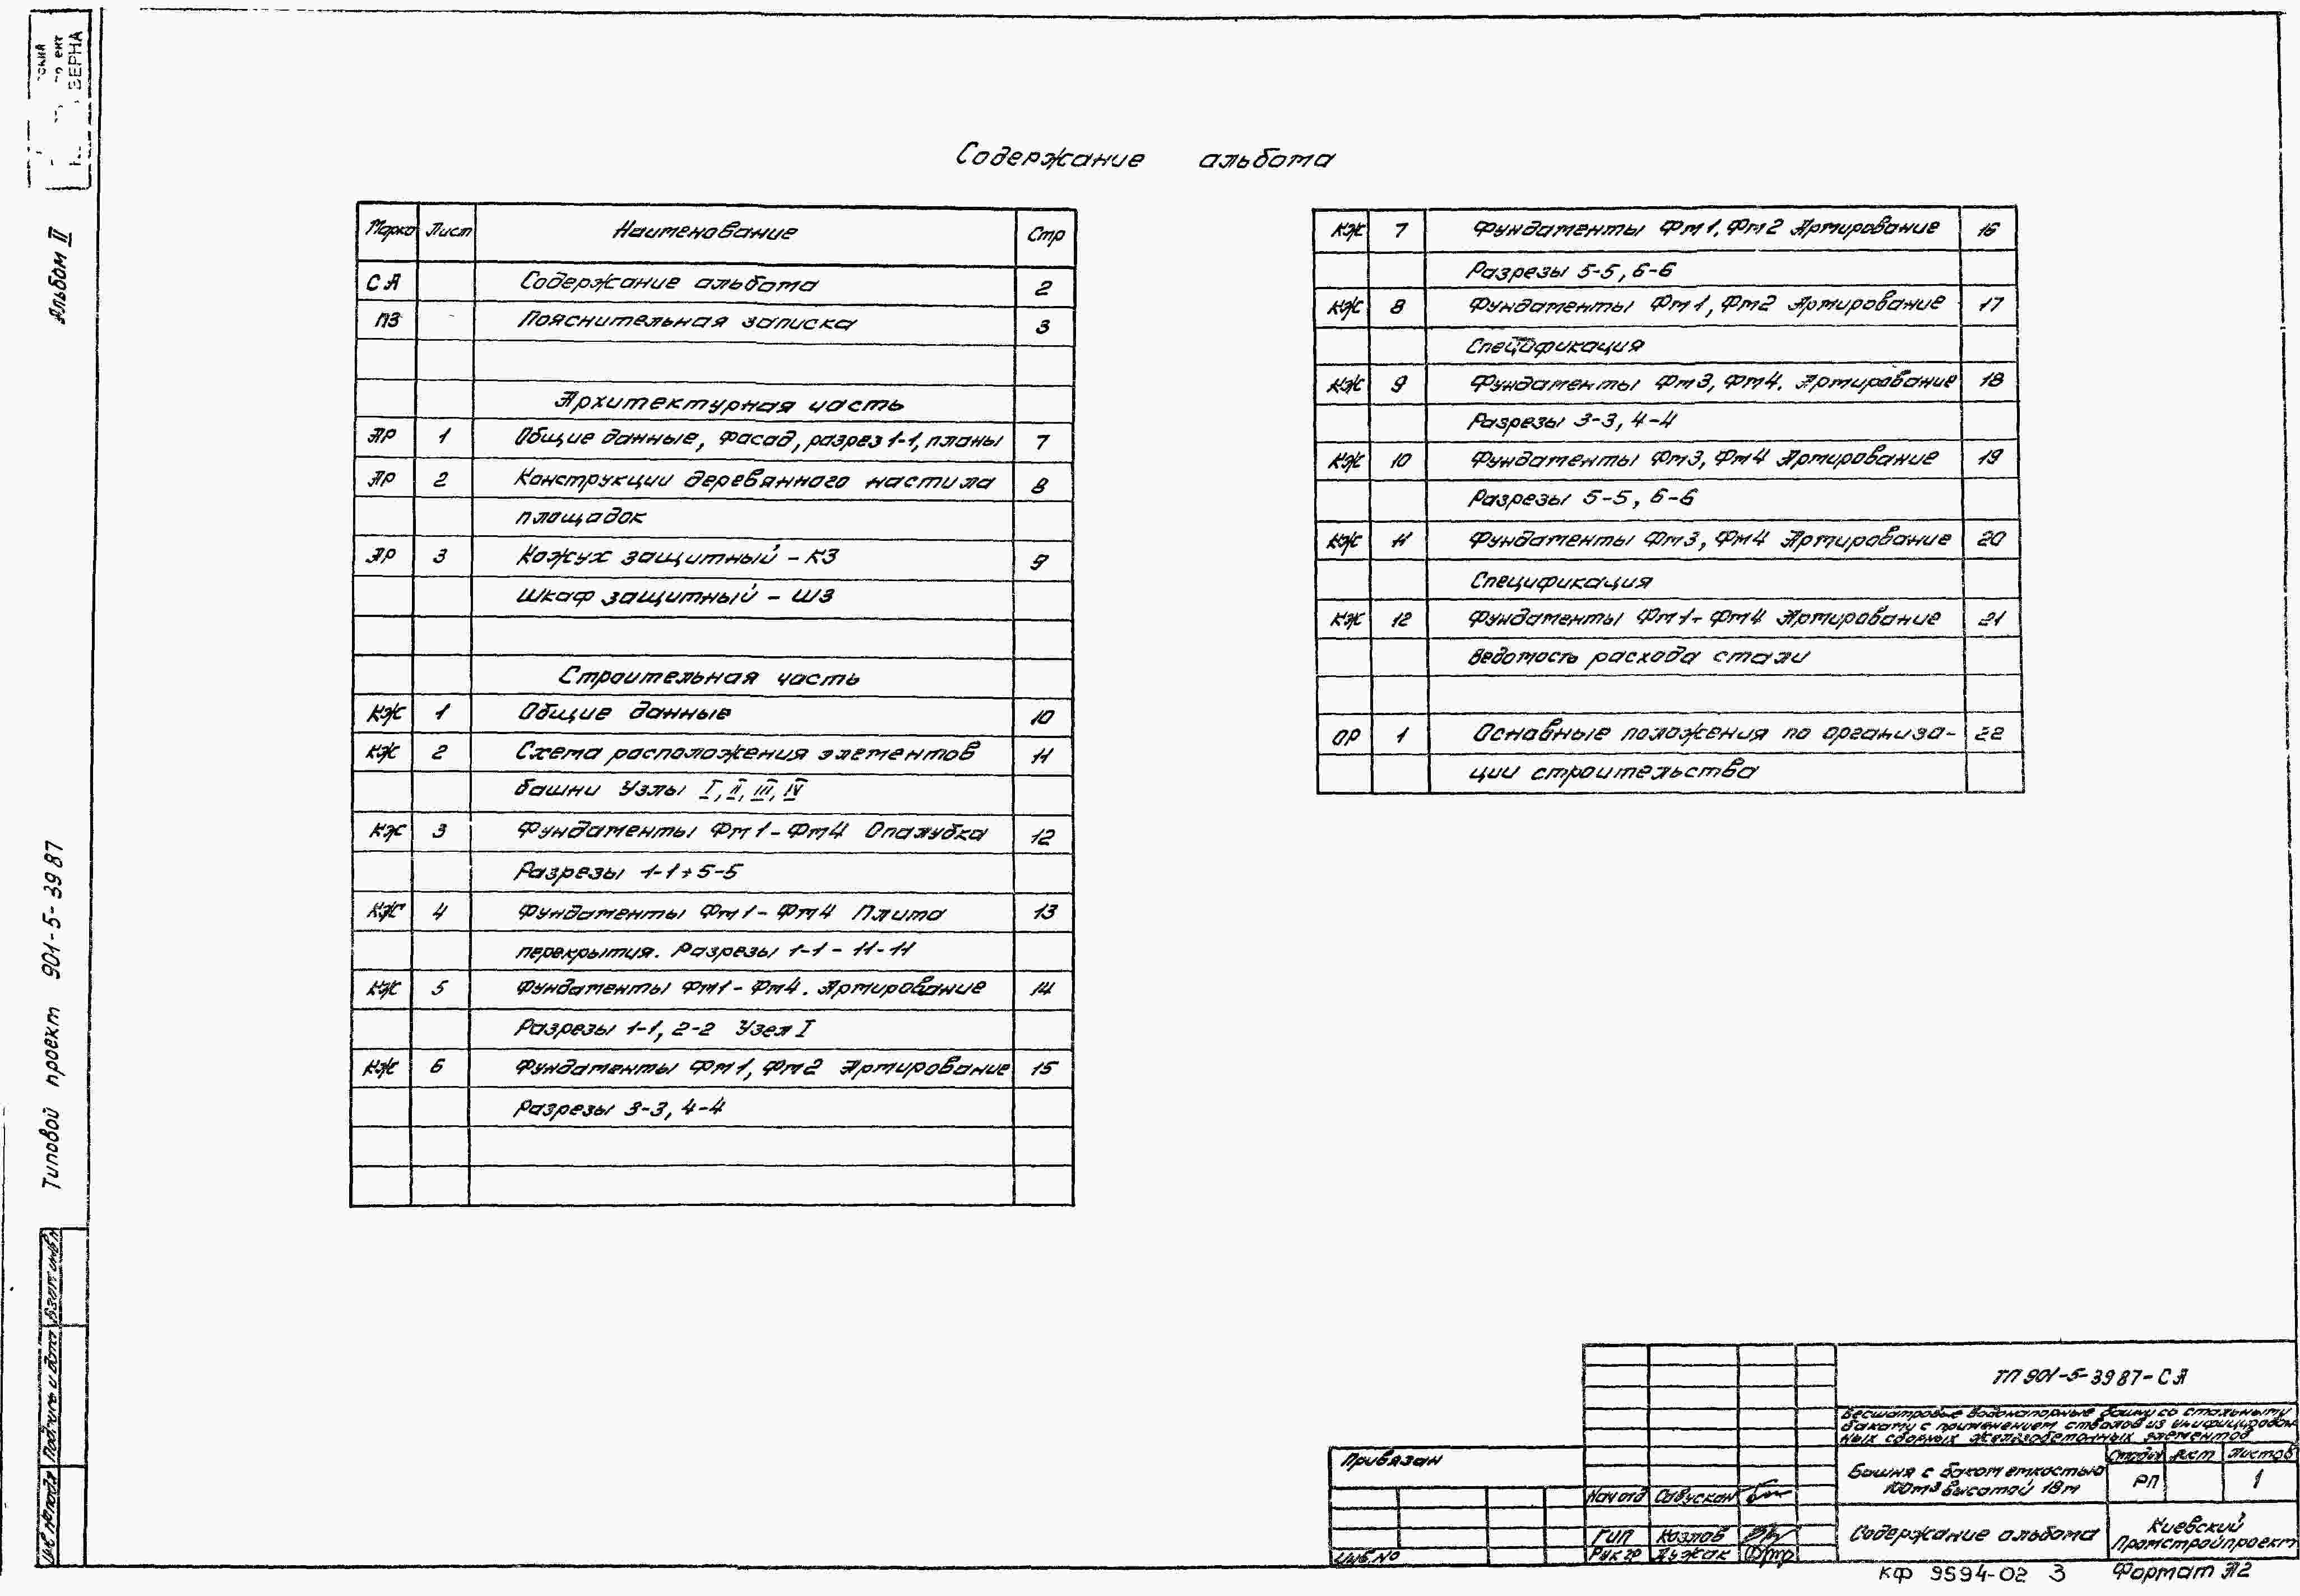 Альбом II
Типовой проект 901-5-39 87
Содержание альбома
Марка Лист Наименование Стр
СА Содержание альбома 2
ПЗ Пояснительная записка 3
Архитектурная часть
АР 1 Общие данные, фасад, разрез 1-1, планы 7
АР 2 Конструкции деревянного настила 8
площадок
АР 3 Кожух защитный – КЗ 9
Шкаф защитный – ШЗ
Строительная часть
КЖ 1 Общие данные 10
КЖ 2 Схема расположения элементов 11
башни Узлы I, II, III, IV
КЖ 3 Фундаменты Фм1-Фм4 Опалубка 12
Разрезы 1-1÷5-5
КЖ 4 Фундаменты Фм1-Фм4 Плита 13
перекрытия. Разрезы 1-1 - 11-11
КЖ 5 Фундаменты Фм1-Фм4. Армирование 14
Разрезы 1-1, 2-2 Узел I
КЖ 6 Фундаменты Фм1, Фм2 Армирование 15
Разрезы 3-3, 4-4
КЖ 7 Фундаменты Фм1, Фм2 Армирование 16
Разрезы 5-5, 6-6
КЖ 8 Фундаменты Фм1, Фм2 Армирование 17
Спецификация
КЖ 9 Фундаменты Фм3, Фм4. Армирование 18
Разрезы 3-3, 4-4
КЖ 10 Фундаменты Фм3, Фм4 Армирование 19
Разрезы 5-5, 6-6
КЖ 11 Фундаменты Фм3, Фм4 Армирование 20
Спецификация
КЖ 12 Фундаменты Фм1-Фм4 Армирование 21
Ведомость расхода стали
ОР 1 Основные положения по организа- 22
ции строительства
Взам инв.№
Подпись и дата
Инв № подл
ТП 901-5-39 87-СА
Бесшатровые водонапорные башни со стальными
баками с применением стволов из унифицирован
ных сборных железобетонных элементов
Привязан
Инв.№
Нач отд
ГИП Козлов
Рук гр
Башня с баком емкостью
100м3 высотой 18м
Стадия Лист Листов
РП 1
Содержание альбома
Киевский
Промстройпроект
КФ 9594-02 3 Формат А2